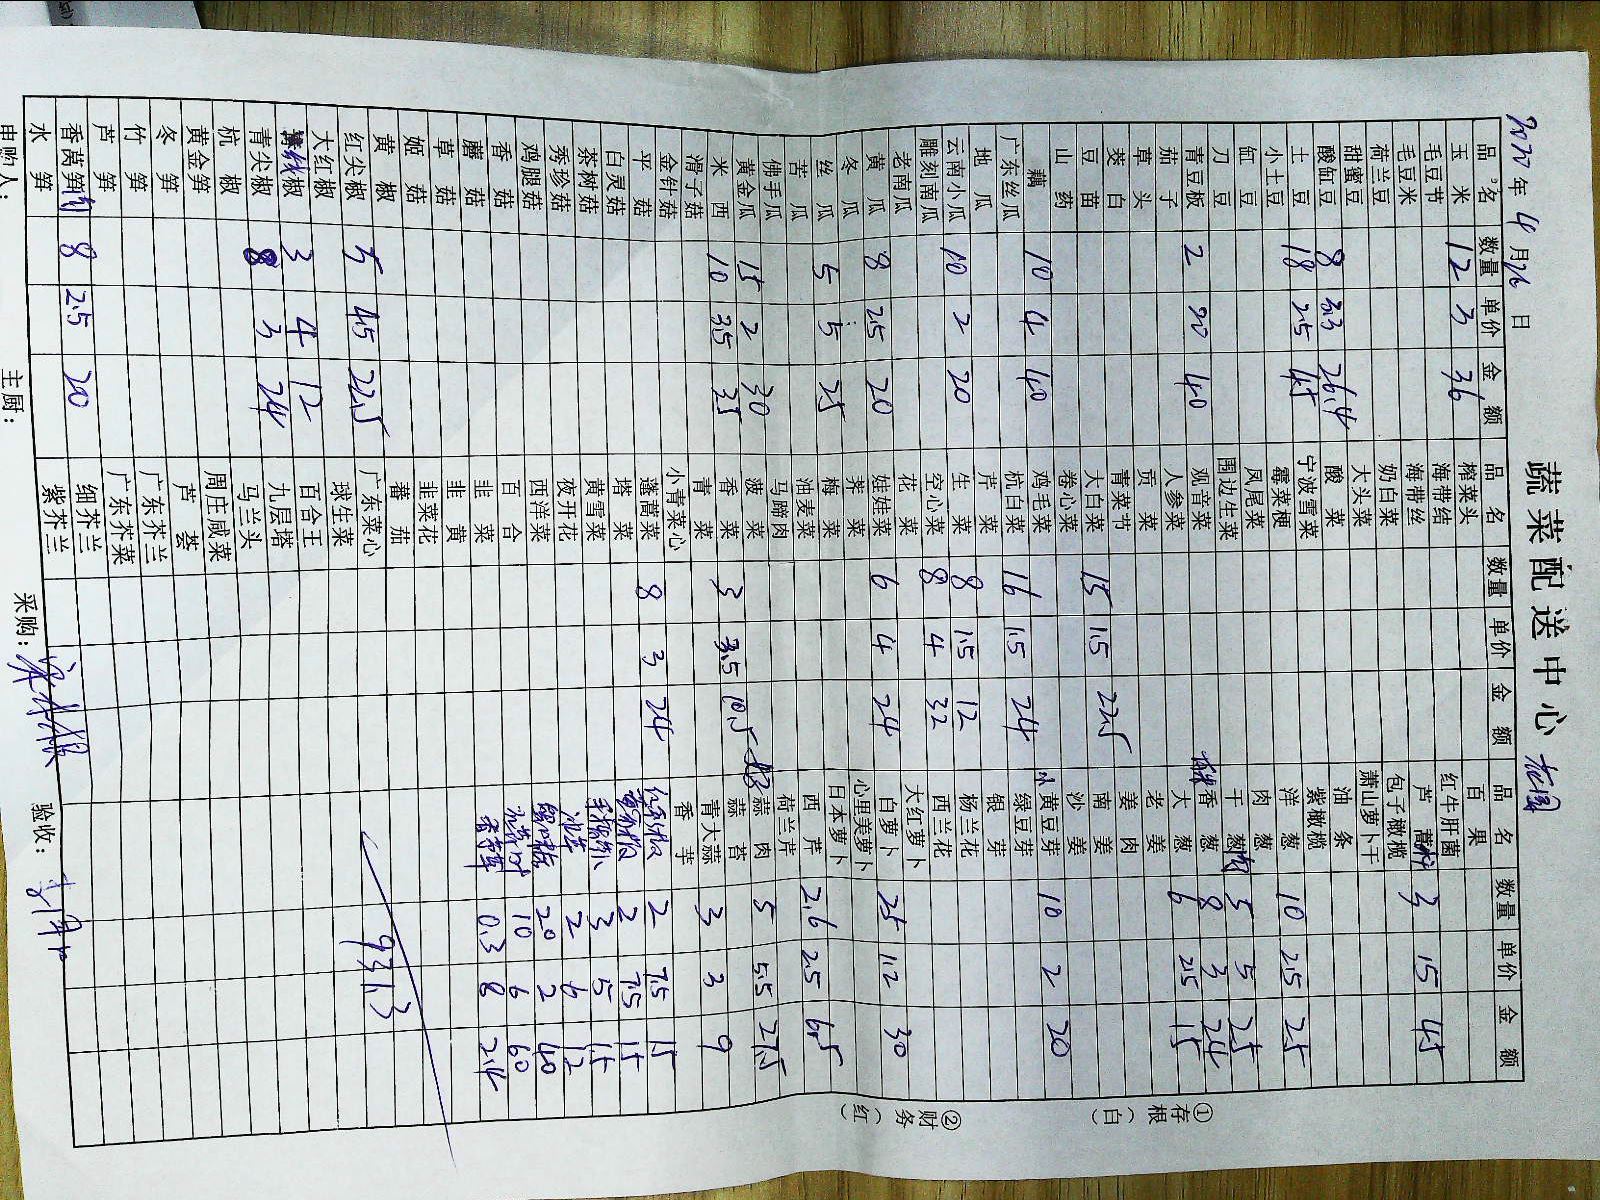 蔬菜配送中心
年4月26日
品名 数量 单价 金额 品名 数量 单价 金额 品名 数量 单价 金额
玉米 12 3 36 榨菜头 百果
毛豆节 海带结 红牛肝菌
毛豆米 海带丝 芦蒿 3 15 45
荷兰豆 奶白菜 包子橄榄
甜蜜豆 大头菜 萧山萝卜干
酸缸豆 8 3.3 26.4 酸菜 油条
土豆 18 2.5 45 宁波雪菜 紫橄榄
小土豆 霉菜梗 洋葱 10 2.5 25
缸豆 凤尾菜 肉葱
刀豆 围边生菜 干葱 5 5 25
青豆板 2 20 40 观音菜 香葱 8 3 24
茄子 人参菜 大葱 6 2.5 15
草头 贡菜 老姜
茭白 青菜节 姜肉
豆苗 大白菜 15 1.5 22.5 南姜
山药 卷心菜 沙姜
藕 10 4 40 鸡毛菜 小黄豆芽 10 2 20
广东丝瓜 杭白菜 16 1.5 24 绿豆芽
地瓜 芹菜 银芽
云南小瓜 10 2 20 生菜 8 1.5 12 杨兰花
雕刻南瓜 空心菜 8 4 32 西兰花
老南瓜 花菜 大红萝卜
黄瓜 8 2.5 20 娃娃菜 6 4 24 白萝卜 25 1.2 30
冬瓜 荠菜 心里美萝卜
丝瓜 5 5 25 梅菜 日本萝卜
苦瓜 油麦菜 西芹 2.6 2.5 6.5
佛手瓜 马蹄肉 荷兰芹
黄金瓜 15 2 30 菠菜 蒜肉 5 5.5 27.5
米西 10 3.5 35 香菜 3 3.5 10.5 蒜苔
滑子菇 青菜 青大蒜 3 3 9
金针菇 小青菜心 香芋
平菇 蓬蒿菜 8 3 24 2 7.5 15
白灵菇 塔菜 2 7.5 15
茶树菇 黄雪菜 3 5 15
秀珍菇 夜开花 2 6 12
鸡腿菇 西洋菜 20 2 40
香菇 百合 10 6 60
蘑菇 韭菜 0.3 8 2.4
草菇 韭黄
姬菇 韭菜花
黄椒 蕃茄
红尖椒 5 4.5 22.5 广东菜心 931.3
大红椒 球生菜
椒 3 4 12 百合王
青尖椒 8 3 24 九层塔
杭椒 马兰头
黄金笋 周庄咸菜
冬笋 芦荟
竹笋 广东芥兰
芦笋 广东芥菜
香莴笋肉 8 2.5 20 细芥兰
水笋 紫芥兰
申购人： 主厨： 采购： 验收：
①存根（白）
②财务（红）